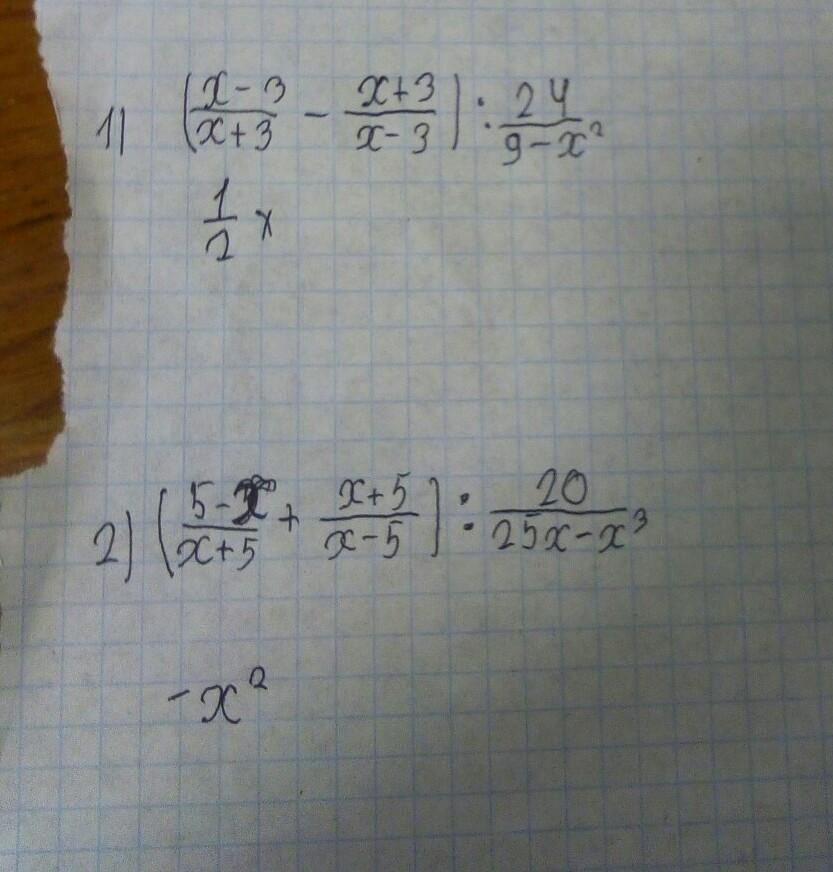 1) ((x-3)/(x+3) - (x+3)/(x-3)) : 24/(9-x²)
1/2 x
2) ((5-x)/(x+5) + (x+5)/(x-5)) : 20/(25x-x³)
-x²